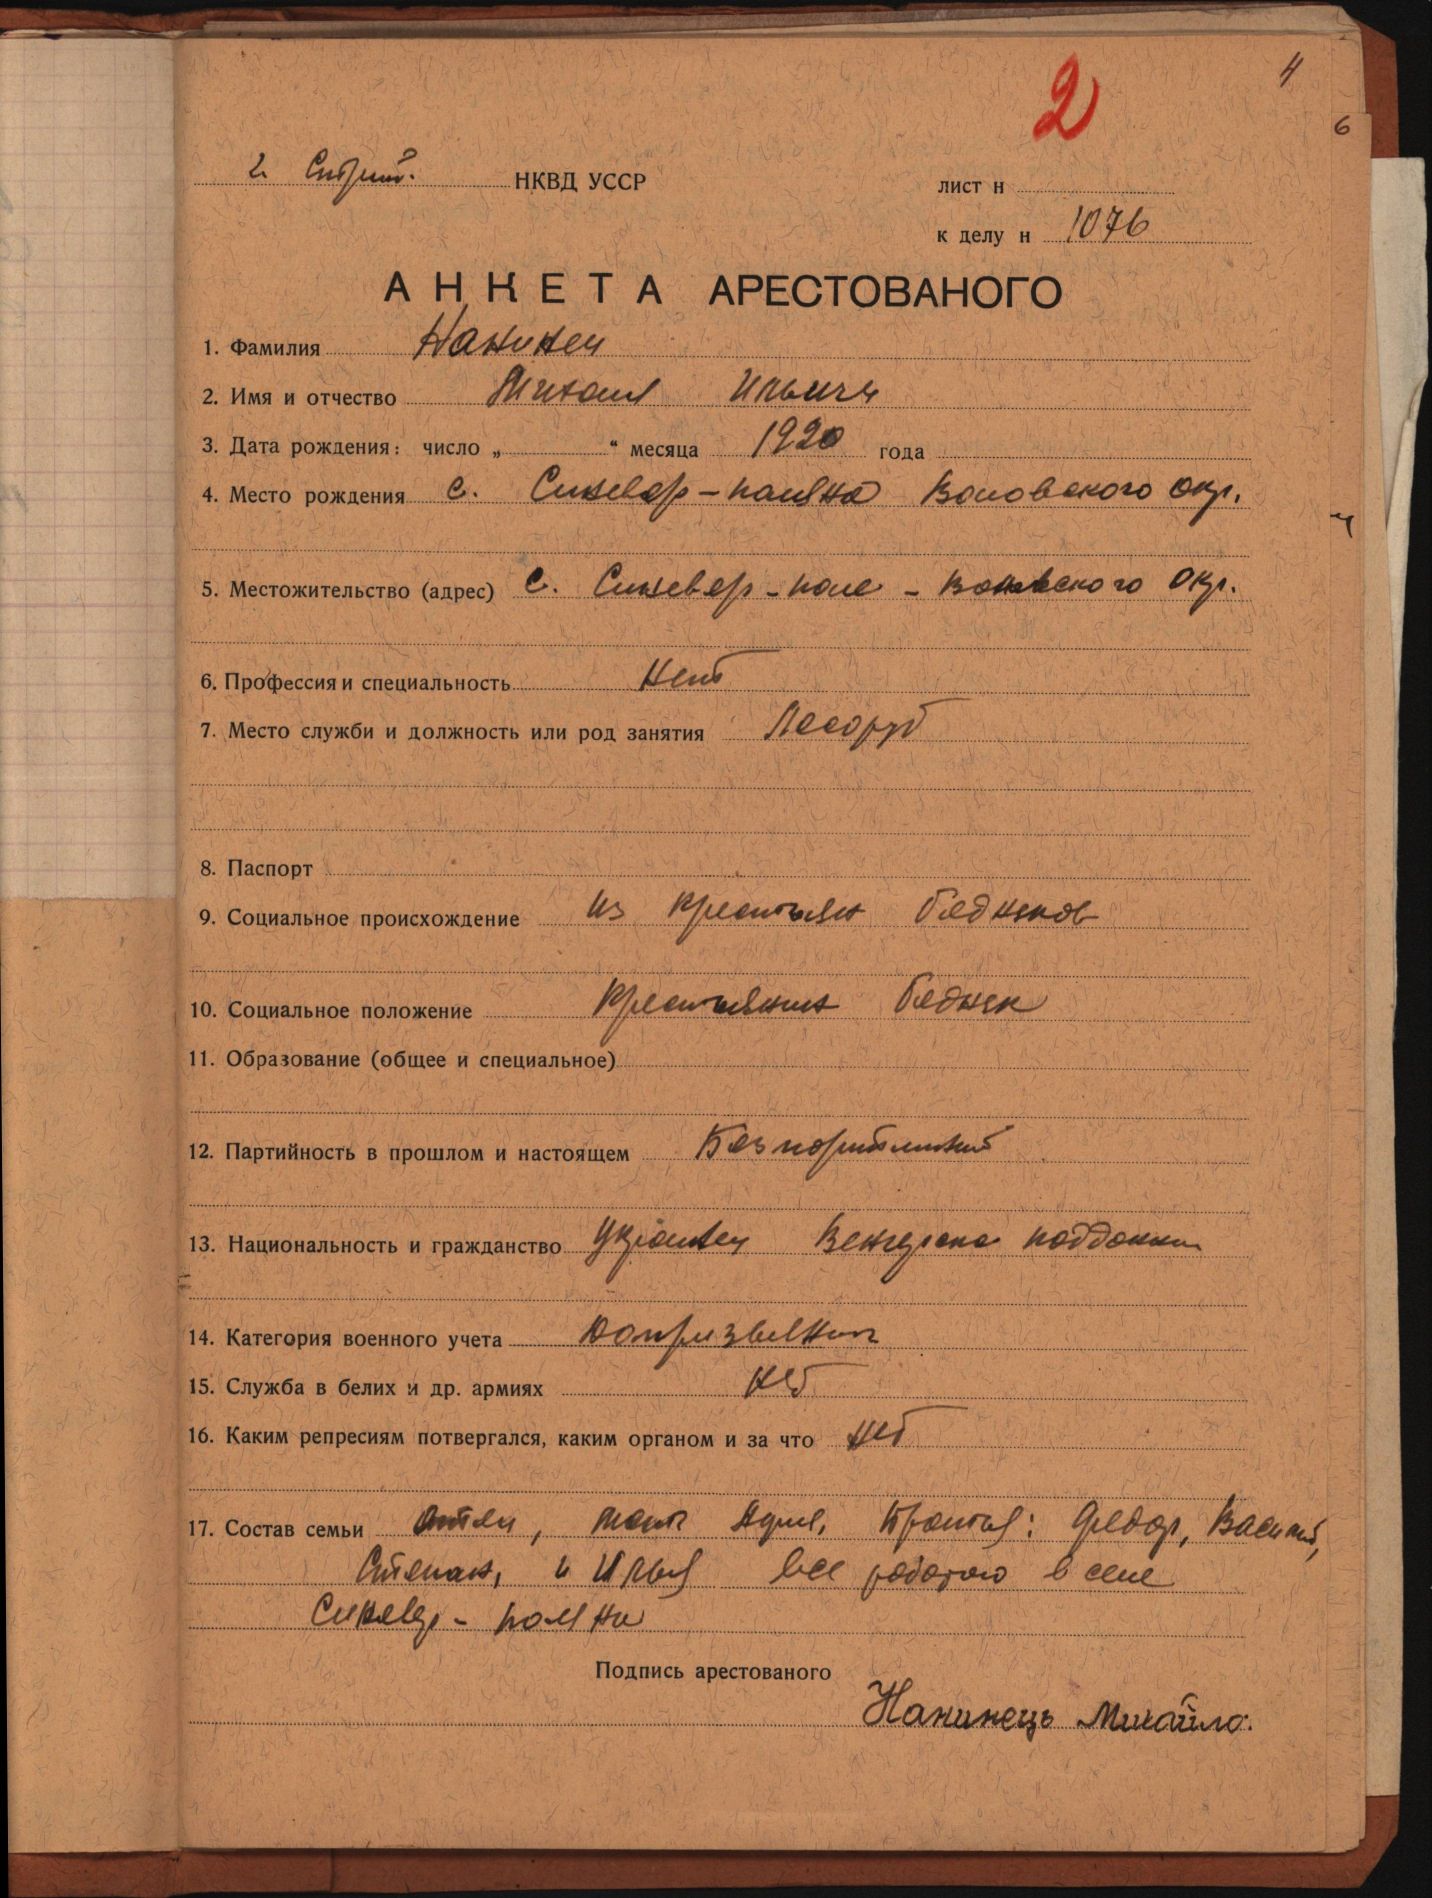 2
4
6
г. Стрий. НКВД УССР
лист н
к делу н 1076
АНКЕТА АРЕСТОВАНОГО
1. Фамилия Нанинец
2. Имя и отчество Михаил Ильичь
3. Дата рождения: число „ “ месяца 1920 года
4. Место рождения с. Синевер-поляна Воловского окр.
5. Местожительство (адрес) с. Синевер-поле - Воловского окр.
6. Профессия и специальность Нет
7. Место служби и должность или род занятия Лесоруб
8. Паспорт
9. Социальное происхождение Из крестьян бедняков
10. Социальное положение крестьянин бедняк
11. Образование (общее и специальное)
12. Партийность в прошлом и настоящем Безпартийний
13. Национальность и гражданство Украинец Венгерско
14. Категория военного учета Допризывник
15. Служба в белих и др. армиях Нет
16. Каким репресиям потвергался, каким органом и за что нет
17. Состав семьи отец, мать Братья: Федор, Василий,
Степан, и Илья все в селе
Синевер-поляни
Подпись арестованого
Нанинець Михайло.